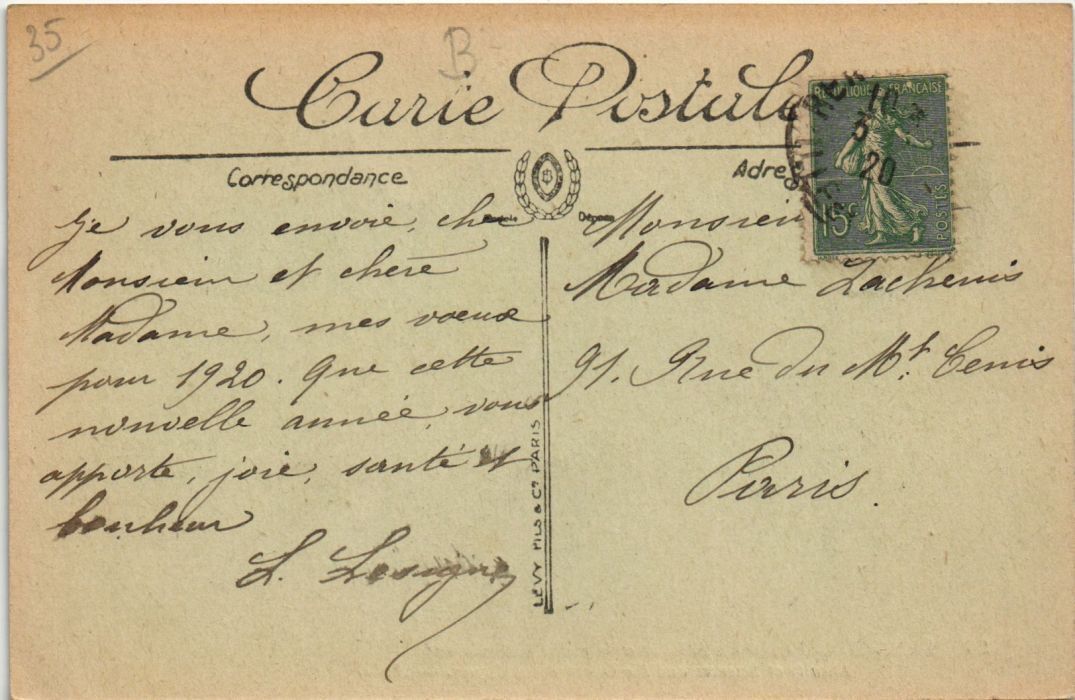 35
B
Carte Postale
Correspondance
Adres
Modèle Déposé
RÉPUBLIQUE FRANÇAISE
15c
POSTES
3
20
Je vous envoie, cher
Monsieur et chère
Madame, mes voeux
pour 1920. Que cette
nouvelle année, vous
apporte, joie, santé et
bonheur
L. Lesigne
LEVY FILS & Cie PARIS
Monsieur
Madame Lachenis
91. Rue du Mt. Cenis
Paris.